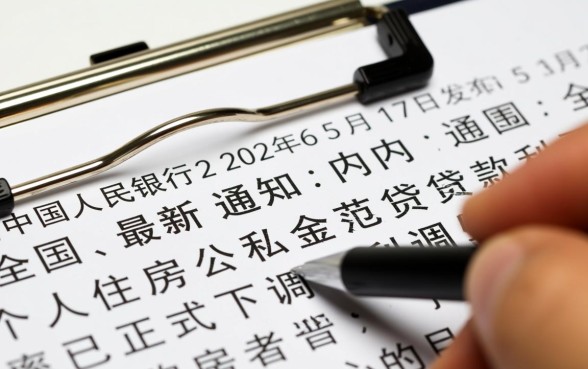 中国人民银行2 202年6 5月17日发布 5 3月
全国、最新 通知：内内：通围：全
个人住房公私金范贷贷款利
率已正式下调 利调
房者
心的